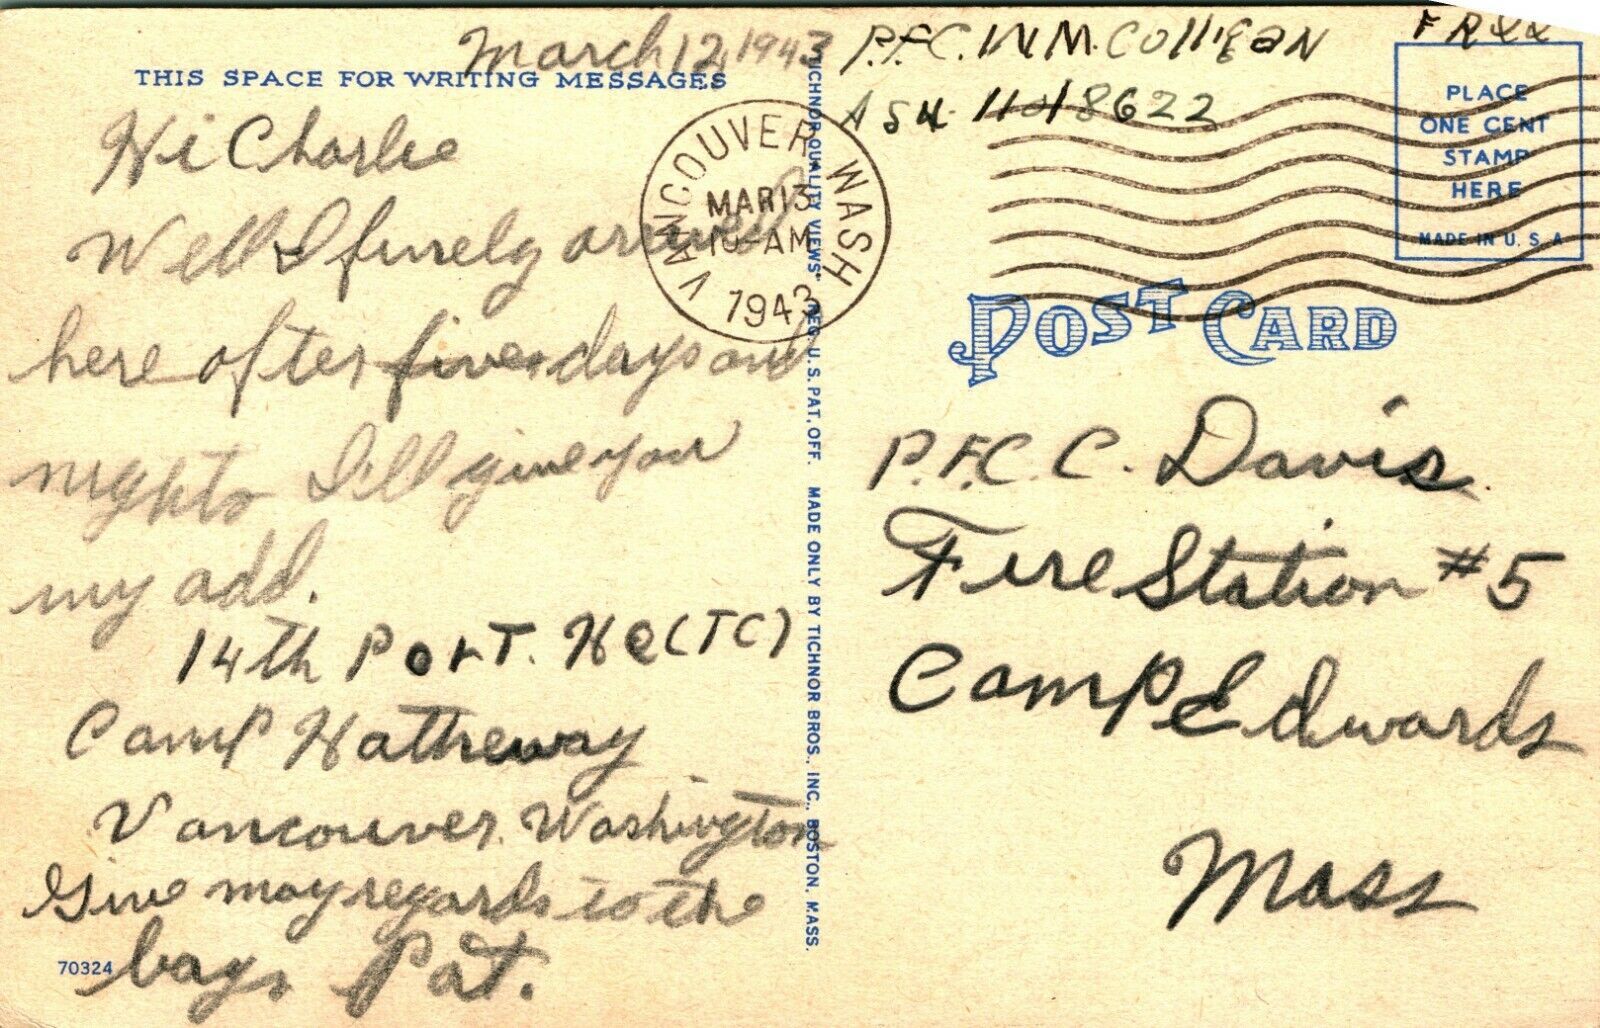 March 12, 1943
THIS SPACE FOR WRITING MESSAGES
Hi Charlie
Well I finely arrived
here after five days and
nights I'll give you
my add.
14th Port. HQ (TC)
Camp Hatheway
Vancouver. Washington
Give my regards to the
boys Pat.
70324
TICHNOR QUALITY VIEWS" REG. U.S. PAT. OFF. MADE ONLY BY TICHNOR BROS., INC., BOSTON, MASS.
VANCOUVER, WASH
MAR 13
10-AM
1943
P.F.C. WM. Colligan
ASN. 11018622
FREE
PLACE
ONE CENT
STAMP
HERE
MADE IN U.S.A
POST CARD
P.F.C. C. Davis
Fire Station #5
Camp Edwards
Mass